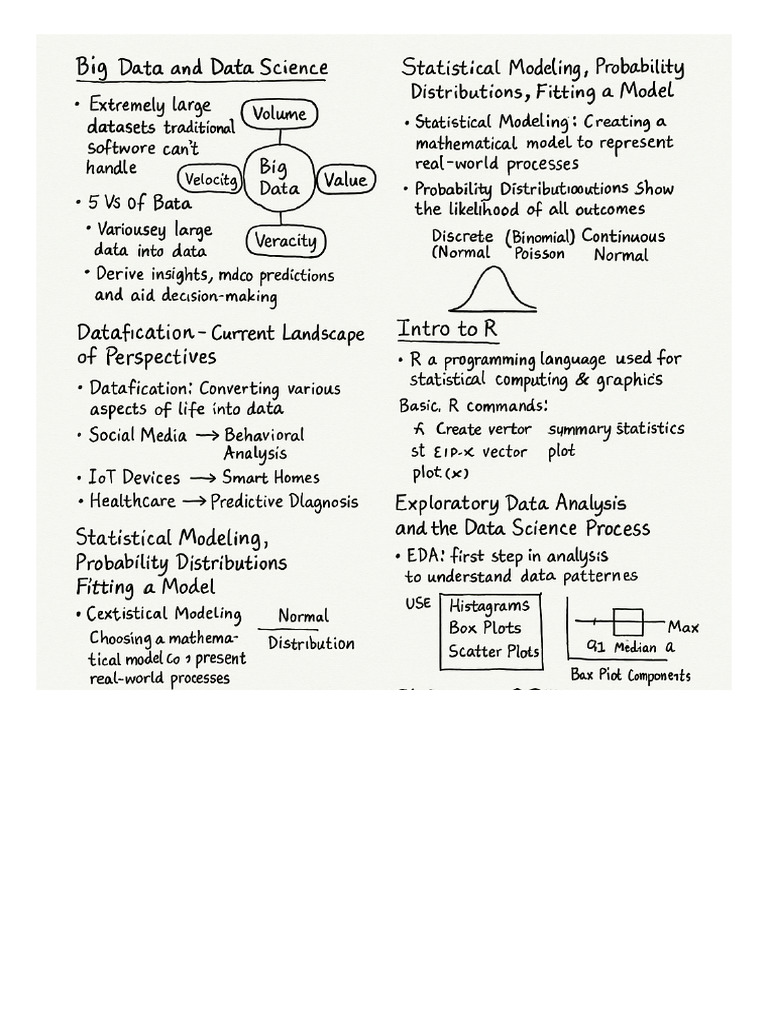 Big Data and Data Science
• Extremely large
datasets traditional
softwore can't
handle
Volume
Velocitg
Big
Data
Value
Veracity
• 5 Vs of Bata
• Variousey large
data into data
• Derive insights, mdco predictions
and aid decision-making
Datafication – Current Landscape
of Perspectives
• Datafication: Converting various
aspects of life into data
• Social Media → Behavioral
Analysis
• IoT Devices → Smart Homes
• Healthcare → Predictive Dlagnosis
Statistical Modeling,
Probability Distributions
Fitting a Model
• Cextistical Modeling
Choosing a mathema-
tical model co , present
real-world processes
Normal
Distribution
Statistical Modeling, Probability
Distributions, Fitting a Model
• Statistical Modeling: Creating a
mathematical model to represent
real-world processes
• Probability Distributiooutions Show
the likelihood of all outcomes
Discrete (Binomial) Continuous
(Normal Poisson Normal
Intro to R
• R a programming language used for
statistical computing & graphics
Basic. R commands:
Create vertor summary statistics
st vector plot
plot (x)
Exploratory Data Analysis
and the Data Science Process
• EDA: first step in analysis
to understand data patternes
USE
Histagrams
Box Plots
Scatter Plots
Max
Median a
Bax Piot Components